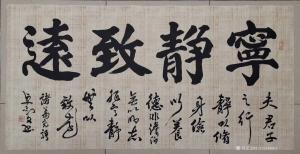 寧静致遠
夫君子
之行
静以修
身儉
以養
德非澹泊
無以明志
非寧静
無以
致遠
諸葛亮語